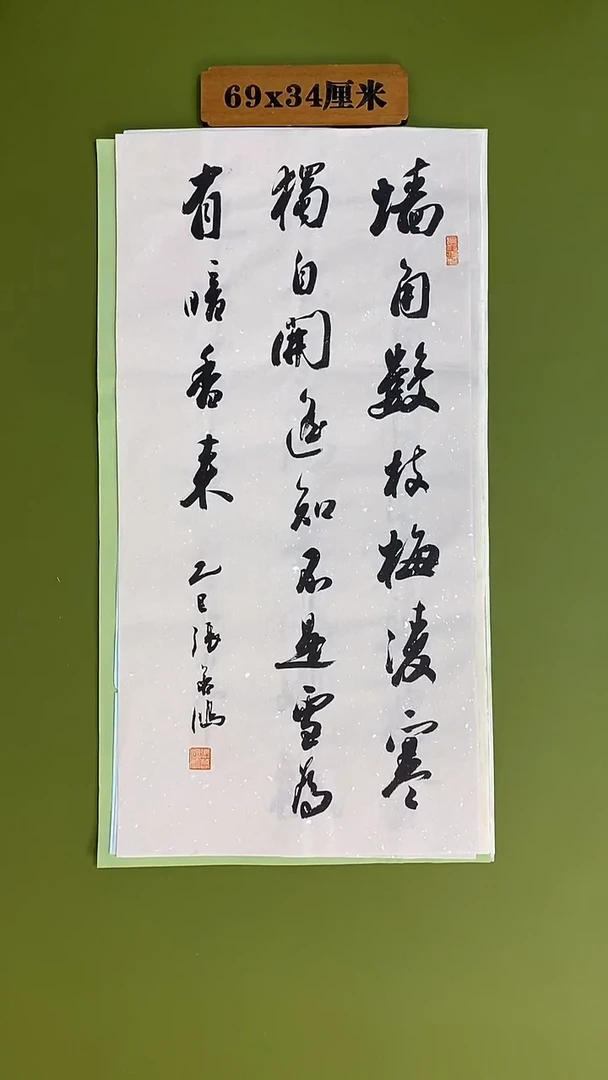 69x34厘米
墙角數枝梅凌寒
獨自開遥知不是雪為
有暗香来
乙巳張